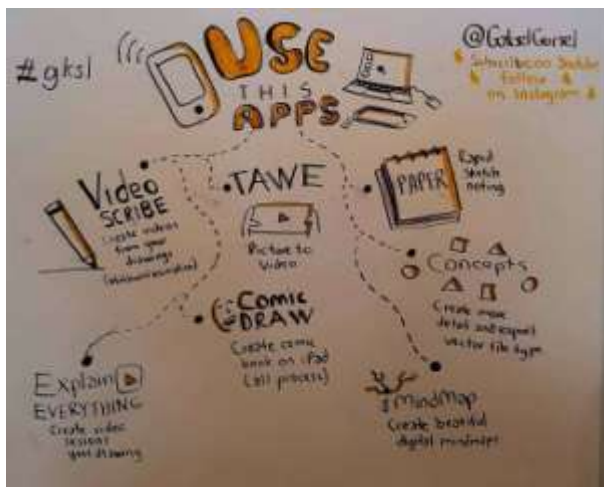 #gksl
USE
THIS
APPS
@GokselGorsel
follow
on Instagram
Video
SCRIBE
Create videos
from your
drawings
TAWE
Picture to
Video
PAPER
Rapid
Sketch
noting
Concepts
Create more
detail and export
vector file type
COMIC
DRAW
Create comic
book on iPad
(all process)
Explain
EVERYTHING
Create video
sessions
your drawing
MindMap
Create beatiful
digital mindmaps